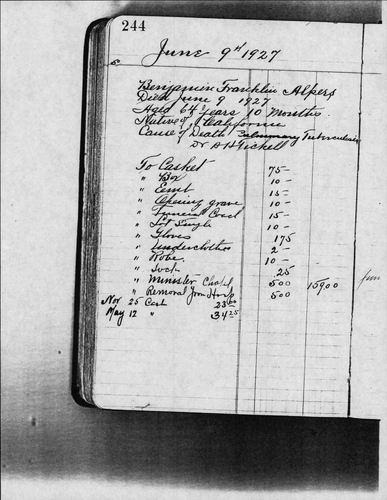 244
June 9th 1927
Benjamin Franklin Alpers
Died June 9 1927
Aged 64 years 10 Months
Native of California
Cause of Death Pulmonary Tuberculosis
Dr A H
To Casket 75-
" Box 10-
" Emb 15-
" Opening grave 10-
" Funeral Coach 15-
" Lot Single 10-
" Gloves 175
" Underclothes 2-
" Robe 10-
" Sock 25
" Minister Chapl 500 15900
" Removal from Hosp 500
Nov 25 Cash 25 00
May 12 " 34 25